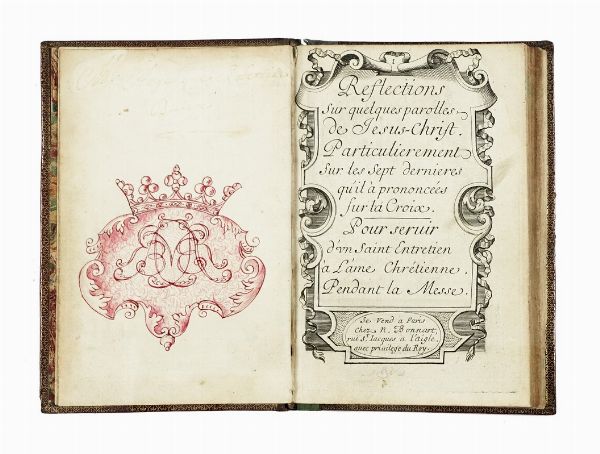 1
Reflections
Sur quelques parolles
de Jesus-Christ.
Particulierement
Sur les Sept dernieres
qu'il à prononcées
sur la Croix.
Pour seruir
d'vn Saint Entretien
à L'ame Chrétienne.
Pendant la Messe.
Se Vend a Paris
Chez N. Bonnart
rüe St. Jacques a l'aigle.
auec priuilege du Roy.